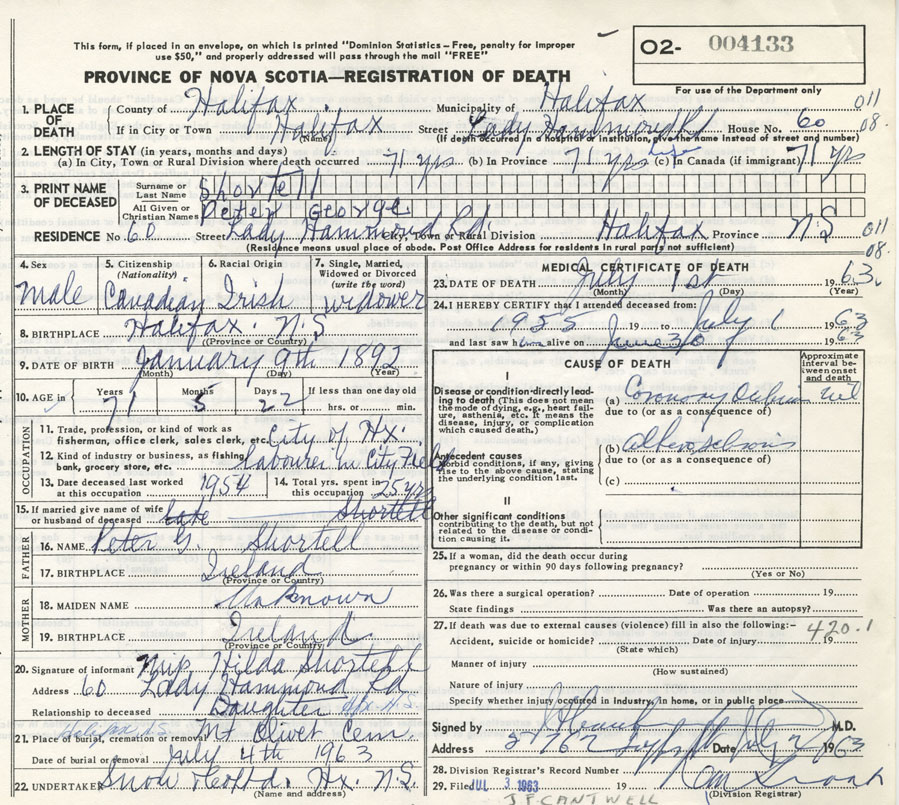 This form, if placed in an envelope, on which is printed "Dominion Statistics – Free, penalty for improper
use $50," and properly addressed will pass through the mail "FREE"
O2- 004133
PROVINCE OF NOVA SCOTIA—REGISTRATION OF DEATH
For use of the Department only
1. PLACE OF DEATH County of Halifax Municipality of Halifax 011
If in City or Town Halifax Street Lady Hammond Rd House No. 60 08.
(Name) (If death occurred in a hospital or institution, give the name instead of street and number)
2. LENGTH OF STAY (in years, months and days)
(a) In City, Town or Rural Division where death occurred 71 yrs (b) In Province 71 yrs (c) In Canada (if immigrant) 71 yrs
3. PRINT NAME OF DECEASED Surname or Last Name Shortell
All Given or Christian Names Peter George
RESIDENCE No. 60 Street Lady Hammond Rd. City, Town or Rural Division Halifax Province N.S 011
(Residence means usual place of abode. Post Office Address for residents in rural parts not sufficient) 08.
4. Sex 5. Citizenship (Nationality) 6. Racial Origin 7. Single, Married, Widowed or Divorced (write the word)
Male Canadian Irish widower
8. BIRTHPLACE Halifax. N.S
(Province or Country)
9. DATE OF BIRTH January 9th 1892
(Month) (Day) (Year)
10. AGE in Years Months Days If less than one day old
71 5 22 hrs. or min.
OCCUPATION
11. Trade, profession, or kind of work as fisherman, office clerk, sales clerk, etc. City of Hx.
12. Kind of industry or business, as fishing, bank, grocery store, etc. labourer in City Field
13. Date deceased last worked at this occupation 1954 14. Total yrs. spent in this occupation 25 yrs
15. If married give name of wife or husband of deceased late Shortell
FATHER
16. NAME Peter G. Shortell
17. BIRTHPLACE Ireland
(Province or Country)
MOTHER
18. MAIDEN NAME Unknown
19. BIRTHPLACE Ireland
(Province or Country)
20. Signature of informant Hilda Shortell
Address 60 Lady Hammond Rd
Relationship to deceased Daughter Hx. N.S.
Halifax N.S.
21. Place of burial, cremation or removal Mt Olivet Cem.
Date of burial or removal July 4th 1963
22. UNDERTAKER Snow Hx. N.S.
(Name and address)
MEDICAL CERTIFICATE OF DEATH
23. DATE OF DEATH July 1st 1963.
(Month) (Day) (Year)
24. I HEREBY CERTIFY that I attended deceased from:
1955 19 to July 1 1963
and last saw him alive on June 30 1963
CAUSE OF DEATH
Approximate interval between onset and death
I
Disease or condition directly leading to death (This does not mean the mode of dying, e.g., heart failure, asthenia, etc. It means the disease, injury, or complication which caused death.)
(a) Coronary
due to (or as a consequence of)
Antecedent causes
Morbid conditions, if any, giving rise to the above cause, stating the underlying condition last.
(b)
due to (or as a consequence of)
(c)
II
Other significant conditions
contributing to the death, but not related to the disease or condition causing it.
25. If a woman, did the death occur during
pregnancy or within 90 days following pregnancy?
(Yes or No)
26. Was there a surgical operation? Date of operation 19
State findings Was there an autopsy?
27. If death was due to external causes (violence) fill in also the following:- 420.1
Accident, suicide or homicide? Date of injury 19
(State which)
Manner of injury
(How sustained)
Nature of injury
Specify whether injury occurred in Industry, in home, or in public place
Signed by M.D.
Address Date July 2 1963
28. Division Registrar's Record Number
29. Filed JUL 3 1963 19
(Division Registrar)
J.F. CANTWELL